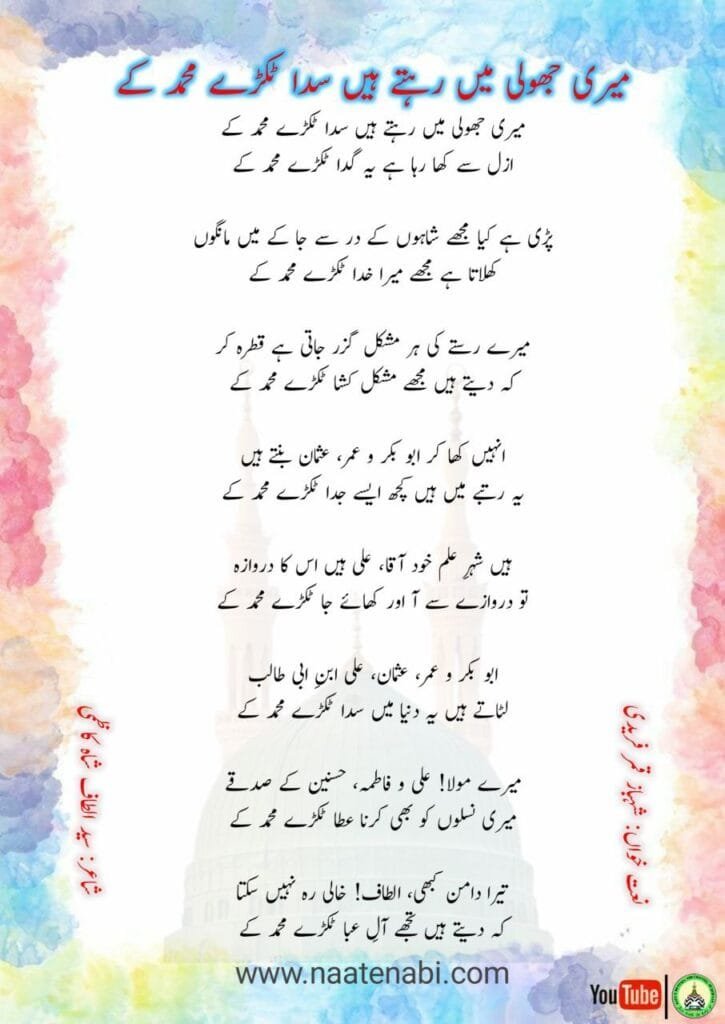 میری جھولی میں رہتے ہیں سدا ٹکڑے محمد کے
میری جھولی میں رہتے ہیں سدا ٹکڑے محمد کے
ازل سے کھا رہا ہے یہ گدا ٹکڑے محمد کے
پڑی ہے کیا مجھے شاہوں کے در سے جا کے میں مانگوں
کھلاتا ہے مجھے میرا خدا ٹکڑے محمد کے
میرے رستے کی ہر مشکل گزر جاتی ہے قطرہ کر
کہ دیتے ہیں مجھے مشکل کشا ٹکڑے محمد کے
انہیں کھا کر ابو بکر و عمر، عثمان بنتے ہیں
یہ رتبے میں ہیں کچھ ایسے جدا ٹکڑے محمد کے
ہیں شہرِ علم خود آقا، علی ہیں اس کا دروازہ
تو دروازے سے آ اور کھائے جا ٹکڑے محمد کے
ابو بکر و عمر، عثمان، علی ابنِ ابی طالب
لٹاتے ہیں یہ دنیا میں سدا ٹکڑے محمد کے
میرے مولا! علی و فاطمہ، حسنین کے صدقے
میری نسلوں کو بھی کرنا عطا ٹکڑے محمد کے
تیرا دامن کبھی، الطاف! خالی رہ نہیں سکتا
کہ دیتے ہیں تجھے آلِ عبا ٹکڑے محمد کے
نعت خواں: شہباز قمر فریدی
شاعر: سید الطاف شاہ کاظمی
www.naatenabi.com
YouTube